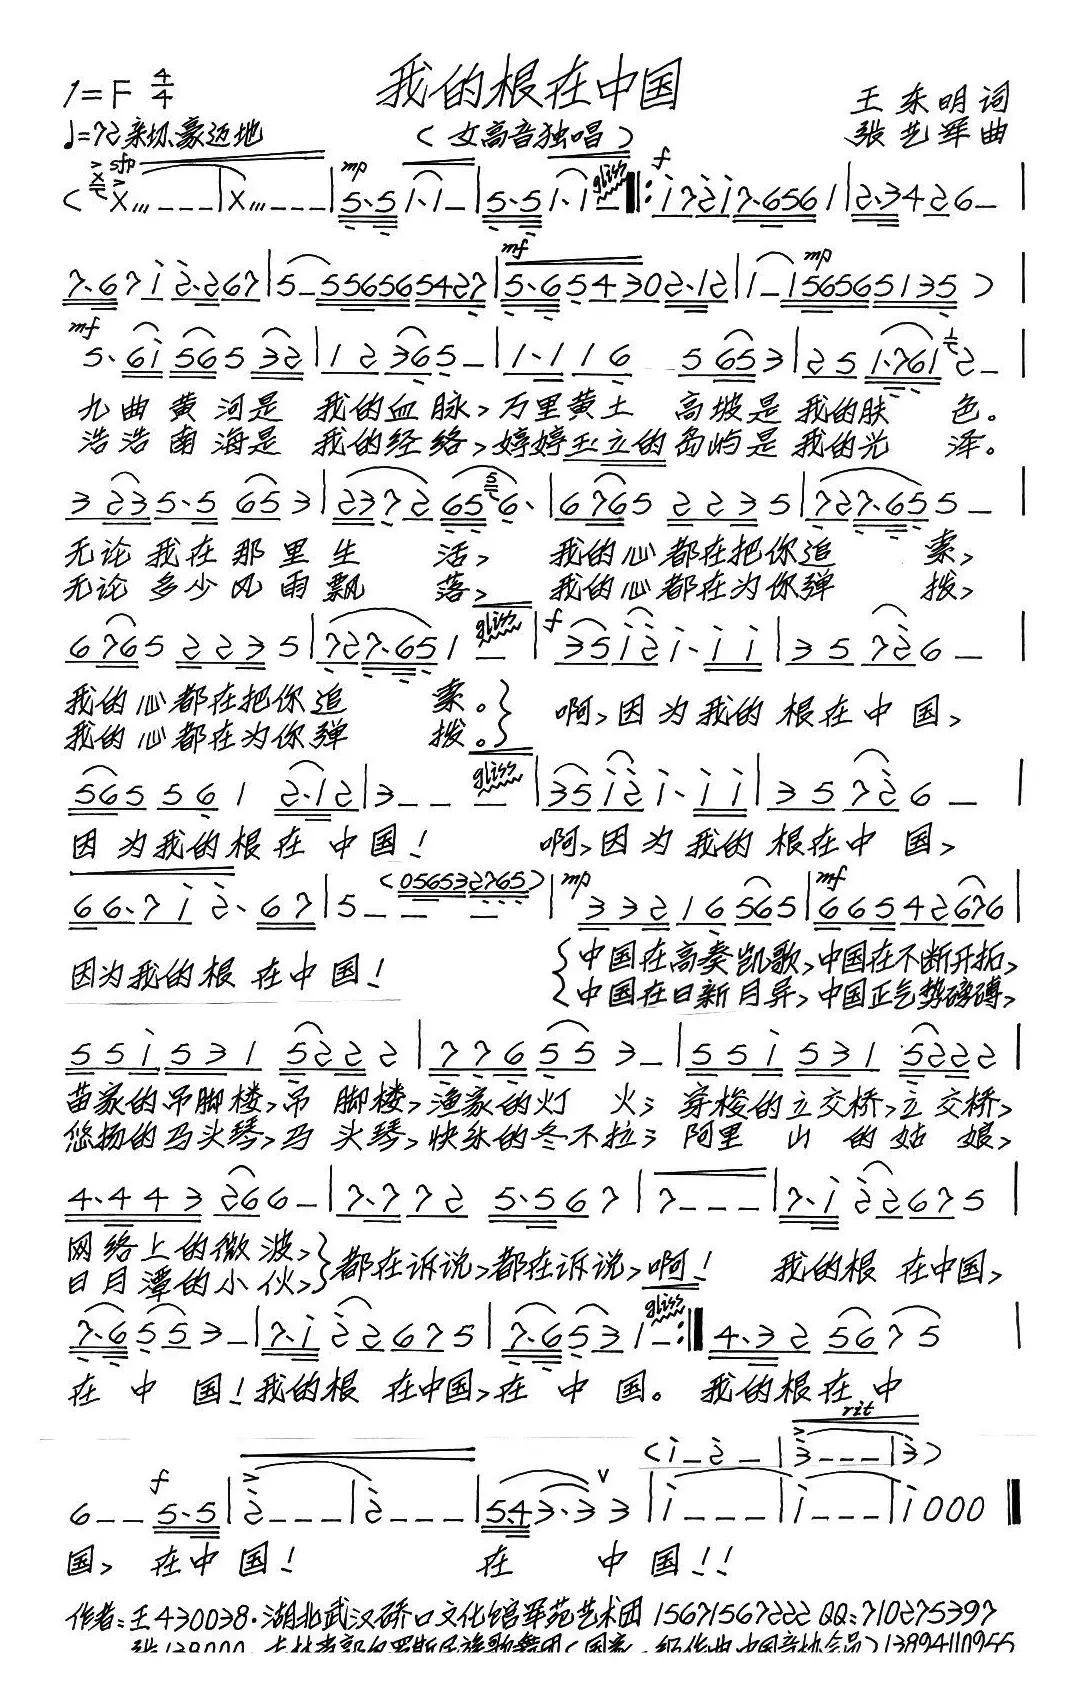 我的根在中国
1=F 4/4
王东明 词
♩=72 亲切、豪迈地
(女高音独唱)
张艺军 曲
sfp mp gliss f
(X… – – – | X… – – – | 5·5 1·1 – | 5·5 1·1 – ‖: i 7 2 i 7·6 5 6 1 | 2·3 4 2 6 – |
mf mp
7·6 7 i 2·2 6 7 | 5 – 5 5 6 5 6 5 4 2 7 | 5·6 5 4 3 0 2·1 2 | 1 – 1 5 6 5 6 5 1 3 5 ) |
mf
5· 6 i 5 6 5 3 2 | 1 2 3 6 5 – | 1·1 1 6 5 6 5 3 | 2 5 1·7 6 1 2 – |
九曲黄河是 我的血脉、万里黄土 高坡是我的肤 色。
浩浩南海是 我的经络、婷婷玉立的岛屿是我的光 泽。
3 2 3 5·5 6 5 3 | 2 3 7 2 6 5 6· | 6 7 6 5 2 2 3 5 | 7 2 7·6 5 5 – |
无论我在那里生 活、 我的心都在把你追 索、
无论多少风雨飘 落、 我的心都在为你弹 拨、
gliss f
6 7 6 5 2 2 3 5 | 7 2 7·6 5 1 – | 3 5 i 2 i· i i | 3 5 7 2 6 – |
我的心都在把你追 索。 啊、因为我的根在中国、
我的心都在为你弹 拨。
gliss
5 6 5 5 6 1 2·1 2 | 3 – – – | 3 5 i 2 i· i i | 3 5 7 2 6 – |
因为我的根在中国! 啊、因为我的根在中国、
(0 5 6 5 3 2 7 6 5) mp mf
6 6·7 i 2·6 7 | 5 – – – | 3 3 2 1 6 5 6 5 | 6 6 5 4 2 6 7 6 |
因为我的根在中国! 中国在高奏凯歌、中国在不断开拓、
中国在日新月异、中国正气势磅礴、
5 5 i 5 3 1 5 2 2 2 | 7 7 6 5 5 3 – | 5 5 i 5 3 1 5 2 2 2 |
苗家的吊脚楼、吊脚楼、渔家的灯 火; 穿梭的立交桥、立交桥、
悠扬的马头琴、马头琴、快乐的冬不拉; 阿里山的姑娘、
4·4 4 3 2 6 6 – | 7·7 7 2 5·5 6 7 | 7 – – – | 7·i 2 2 6 7 5 |
网络上的微波、 都在诉说、都在诉说、啊! 我的根在中国、
日月潭的小伙、
gliss
7·6 5 5 3 – | 7·i 2 2 6 7 5 | 7·6 5 3 1 – :‖ 4·3 2 5 6 7 5 |
在中国!我的根在中国、在中国。 我的根在中
rit
(i – 2 – | 3 – – – | 3)
f
6 – – 5·5 | 2 – – – | 2 – – – | 5 4 3·3 3 | i – – – | i – – – | i 0 0 0 ‖
国、在中国! 在中国!!
作者:王430038·湖北武汉硚口文化馆军苑艺术团 15671567222 QQ:710275397